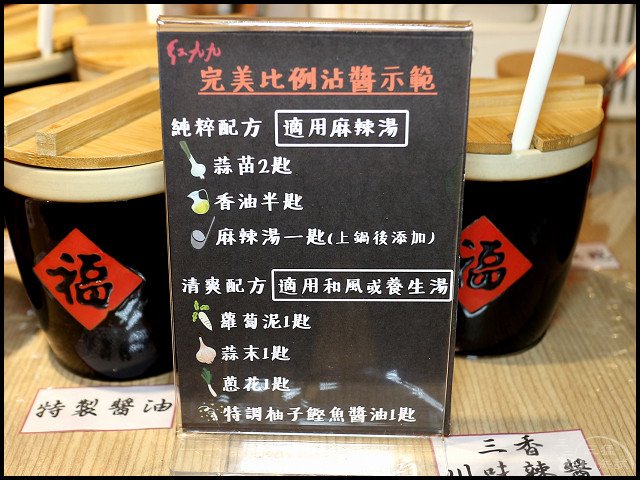 紅九九
完美比例沾醬示範
純粹配方 適用麻辣湯
蒜苗2匙
香油半匙
麻辣湯一匙(上鍋後添加)
清爽配方 適用和風或養生湯
蘿蔔泥1匙
蒜末1匙
蔥花1匙
特調柚子鰹魚醬油1匙
福
福
特製醬油
三香
川味辣醬